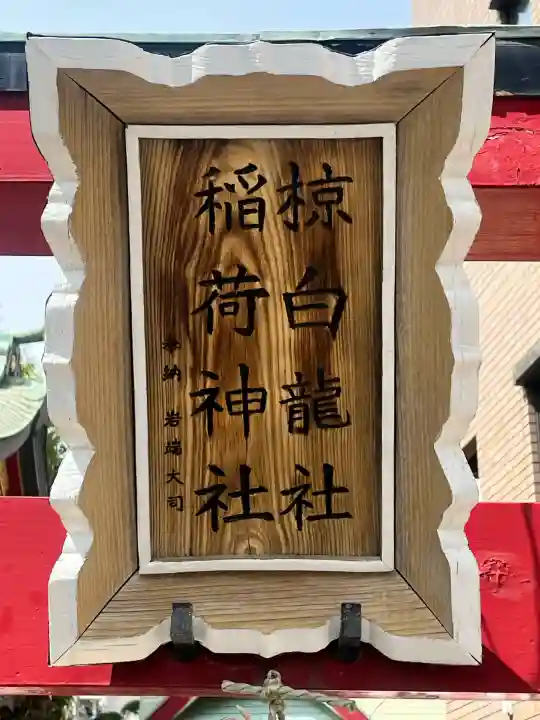 椋白龍社
稲荷神社
奉納 岩端大司